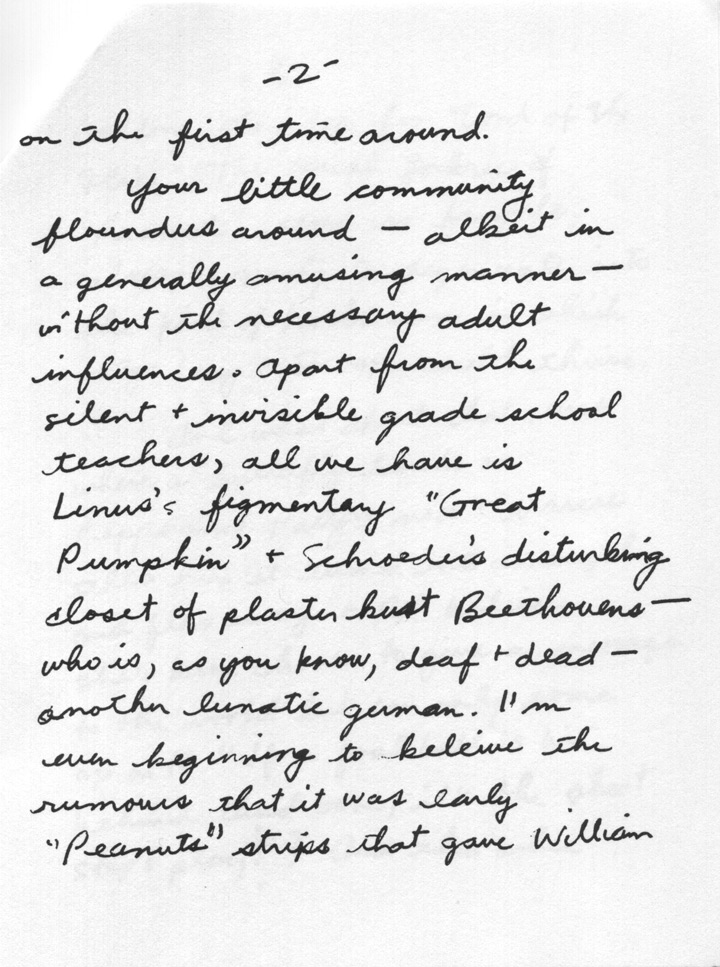 -2-
on the first time around.
Your little community
flounders around — albeit in
a generally amusing manner —
without the necessary adult
influences. Apart from the
silent + invisible grade school
teachers, all we have is
Linus's figmentary "Great
Pumpkin" + Schroeder's disturbing
closet of plaster bust Beethovens —
who is, as you know, deaf + dead —
another lunatic german. I'm
even beginning to beleive the
rumours that it was early
"Peanuts" strips that gave William